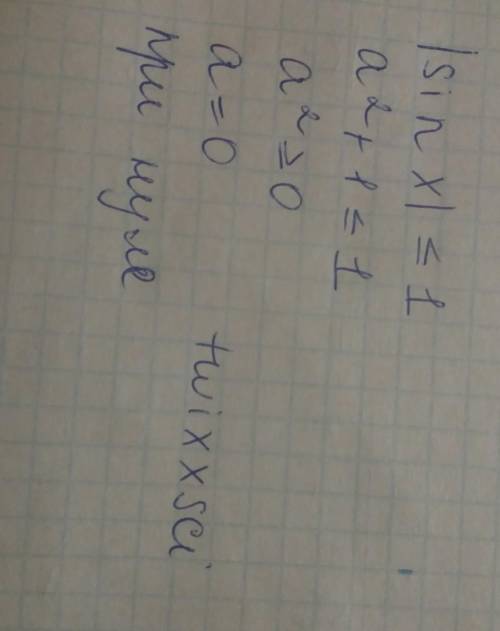 |sin x| ≤ 1
a² + 1 ≤ 1
a² ≥ 0
a = 0
при нуле
twixxsci